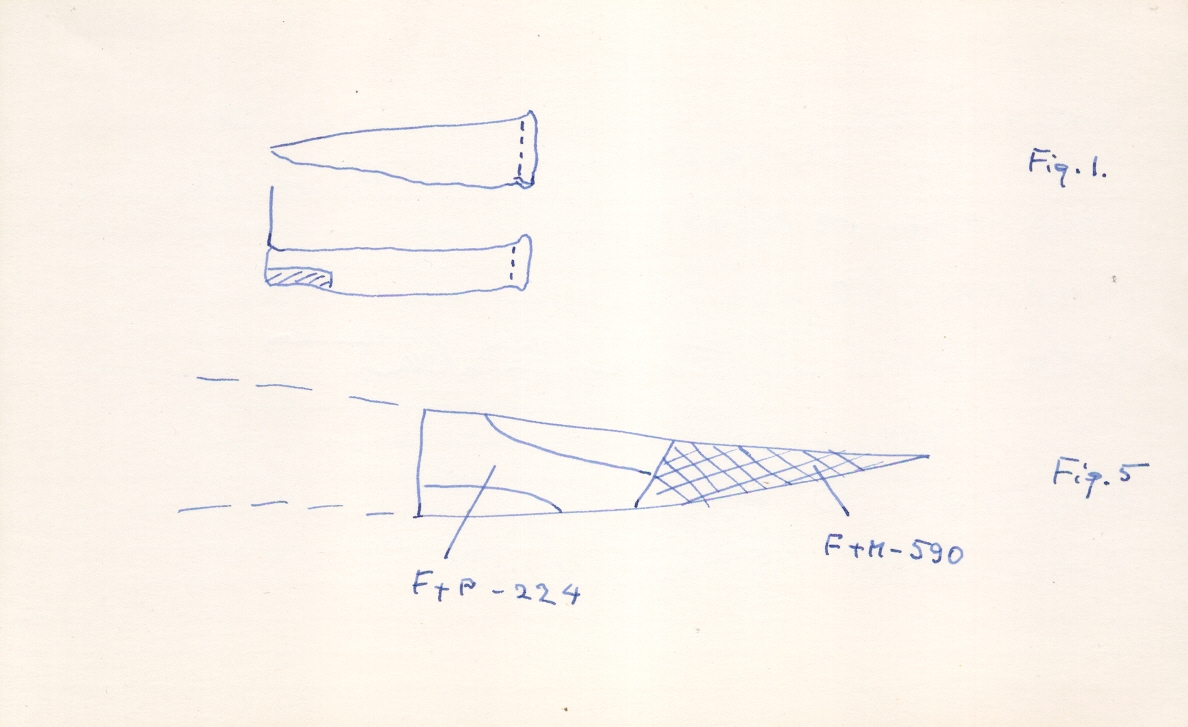 Fig. 1.
Fig. 5
F+M-590
F+P-224